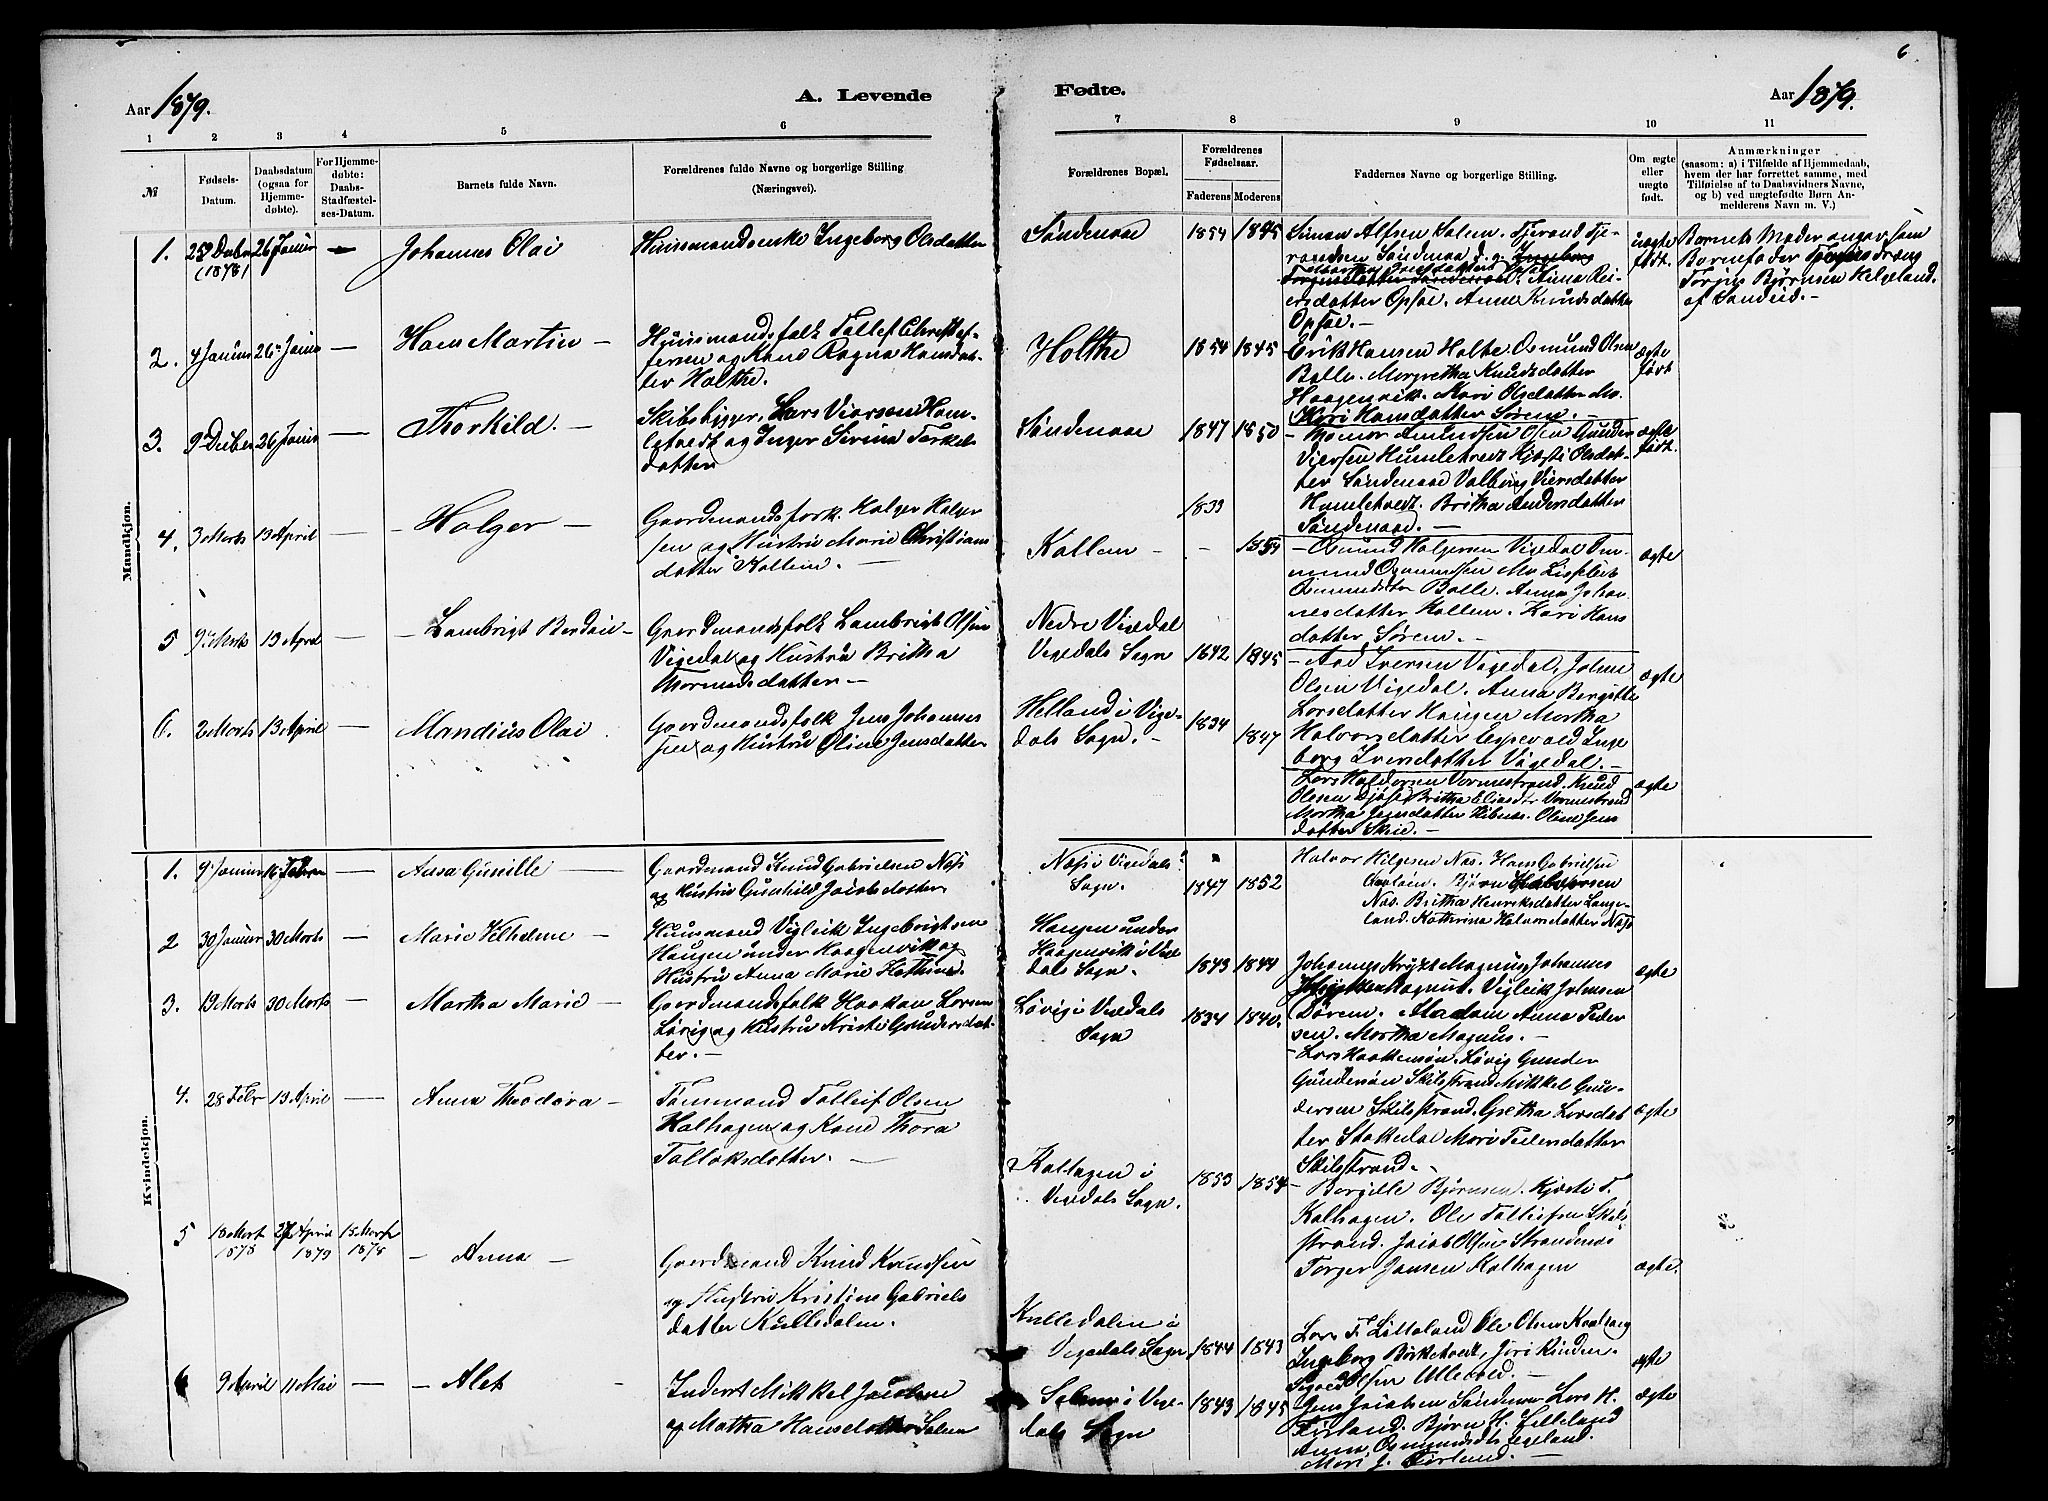 6
Aar 1879.
A. Levende
Fødte.
Aar 1879.
1 2 3 4 5 6 7 8 9 10 11
№
Fødsels-
Datum.
Daabsdatum
(ogsaa for
Hjemme-
døbte).
For Hjemme-
døbte:
Daabs-
Stadfæstel-
ses-Datum.
Barnets fulde Navn.
Forældrenes fulde Navne og borgerlige Stilling
(Næringsvei).
Forældrenes Bopæl.
Forældrenes
Fødselsaar.
Faderens Moderens
Faddernes Navne og borgerlige Stilling.
Om ægte
eller
uægte
født.
Anmærkninger
(saasom: a) i Tilfælde af Hjemmedaab,
hvem der har forrettet samme, med
Tilføielse af to Daabsvidners Navne,
og b) ved uægtefødte Børn An-
melderens Navn m. V.)
Mandkjøn.
1. 26 Januar — Johannes Olai
(1878)
Huusmandsenke Ingeborg Olsdatter
Søndenaae 1854 1845
Simon Alfsen Kalem. Tjerand Tje-
randsen Søndenaa
Opsøe. Anne Knudsdatter
Opsøe. —
uægte
født.
Barnets Moder angav som
Barnefader
Tørjus Bjørnsen Helgeland.
af Sandeid. —
2. 4 Januar 26 Januar — Hans Martin —
Huusmandsfolk Tollef Christof-
fersen og Kone Ragna Hansdat-
ter Holthe.
Holthe 1854 1845
Erik Hansen Holte. Osmund Olsen
Balle. Margretha Knudsdatter
Haagenvik. Kari Olsdatter
Kari Hansdatter Sørem. —
ægte
født
3. 9 Deeber 26 Januar — Thorkild. —
Skibsbygger. Lars Viersen Hum-
letvedt og Inger Serina Torkels
datter
Søndenaae 1847 1850
Amundsen Olsen Gunder
Viersen Humletvedt Kjisti Olsdat-
ter Søndenaae Valborg Viersdatter
Humletvedt. Britha Andersdatter
Søndenaae. —
ægte
født.
4. 3 Marts 13 April — Holger —
Gaardmandsfolk. Holger Holger
sen og Hustru Marie Christians
datter Kallem. —
1833
Kallem — 1854
Osmund Holgersen Vigedal
Balle. Anna Johan-
nesdatter Kallem. Kari Hans
datter Sørem. —
ægte
5 9 Marts 13 April — Lambrigt Berdain —
Gaardmandsfolk Lambrigt Olsen
Vigedal og Hustru Britha
Tormodsdatter —
Nedre Vigedal
Vigedals Sogn 1842 1845
— Aad Iversen Vigedal, Johne
Olsen Vigedal. Anna Bergitte
Larsdatter Haugen Martha
Halvorsdatter Espevold Inge
borg Iversdatter Vigedal. —
ægte
6. 2 Marts 13 April — Mandius Olai
Gaardmandsfolk Jens Johannes
sen og Hustru Oline Jensdatter
Helland i Vige-
dals Sogn. — 1834 1847
Lars Haldorsen Vormestrand. Knud
Olesen Opsøe Britha Eliasdtr Vormestrand
Martha Jensdatter Oline Jens
datter Skrie. —
ægte
Kvindekjøn.
1. 9 Januar 16 Febru Anna Gunille —
Gaardmand Knud Gabrielsen Næs
og Hustru Gunhild Jacobsdatter.
Næs i Vigedals
Sogn. 1847 1852
Halvor Helgesen Næs. Hans Gabrielsen
Bjørn Halvorsen
Næs. Britha Henriksdatter Lange-
land. Kathrina Halvorsdatter Næs
2 30 Januar 30 Marts — Marie Vilhelme —
Huusmand Vigleik Ingebrigtsen
Haugen under Haagenvik og
Hustru Anna Marie Kathrine.
Haugen under
Haagenvik i Vige
dals Sogn. 1843 1844
Johannes Magnus Johannes
Magnus. Vigleik Johnsen
Sørem. Madam Anna Peder
sen. Martha Magnus. —
ægte
3. 19 Marts 30 Marts — Martha Marie —
Gaardmandsfolk Haakan Larsen
Løvig og Hustru Kristi Gundersdat-
ter. —
Løvig i Vigedals
Sogn 1834 1840.
— Lars Haakensøn Løvig Gunder
Gundersøn Skibstrand Mikkel Gun-
dersen Skibstrand. Gretha Larsdat
ter Stakedal Mari Pedersdatter
Skibstrand. —
ægte
4. 28 Febr 13 April — Anna Theodora —
Tømmand Tollief Olsen
Halhagen og Kone Thora
Tollaksdatter. —
Kalhagen i
Vigedals Sogn. 1853 1854
— Børgille Bjørnsen. Kjisti T.
Kalhagen. Ole Tolliefsen Skib-
strand. Jacob Olsen Strandenæs
Torger Jansen Kalhagen
ægte.
5 18 Marts 27 April 18 Marts
1878 1879 1878 — Anna —
Gaardmand Knud Knudsen
og Hustru Kristine Gabriels
datter Kulledalen.
Kulledalen i
Vigedals Sogn 1844 1843
Lars T. Litteland Ole Olsen
Ingeborg Birketvedt,
Olsen Ullevold. —
ægte
6 9 April 11 Mai — — Alet —
Inderst Mikkel Jacobsen
og Martha Hansdatter Salem
Salem i Vige-
dals Sogn 1843 1845
Jens Jacobsen Søndenaa Lars H.
Bjørn H. Lilleland
Anna Osmundsdtr
Mari J. —
ægte